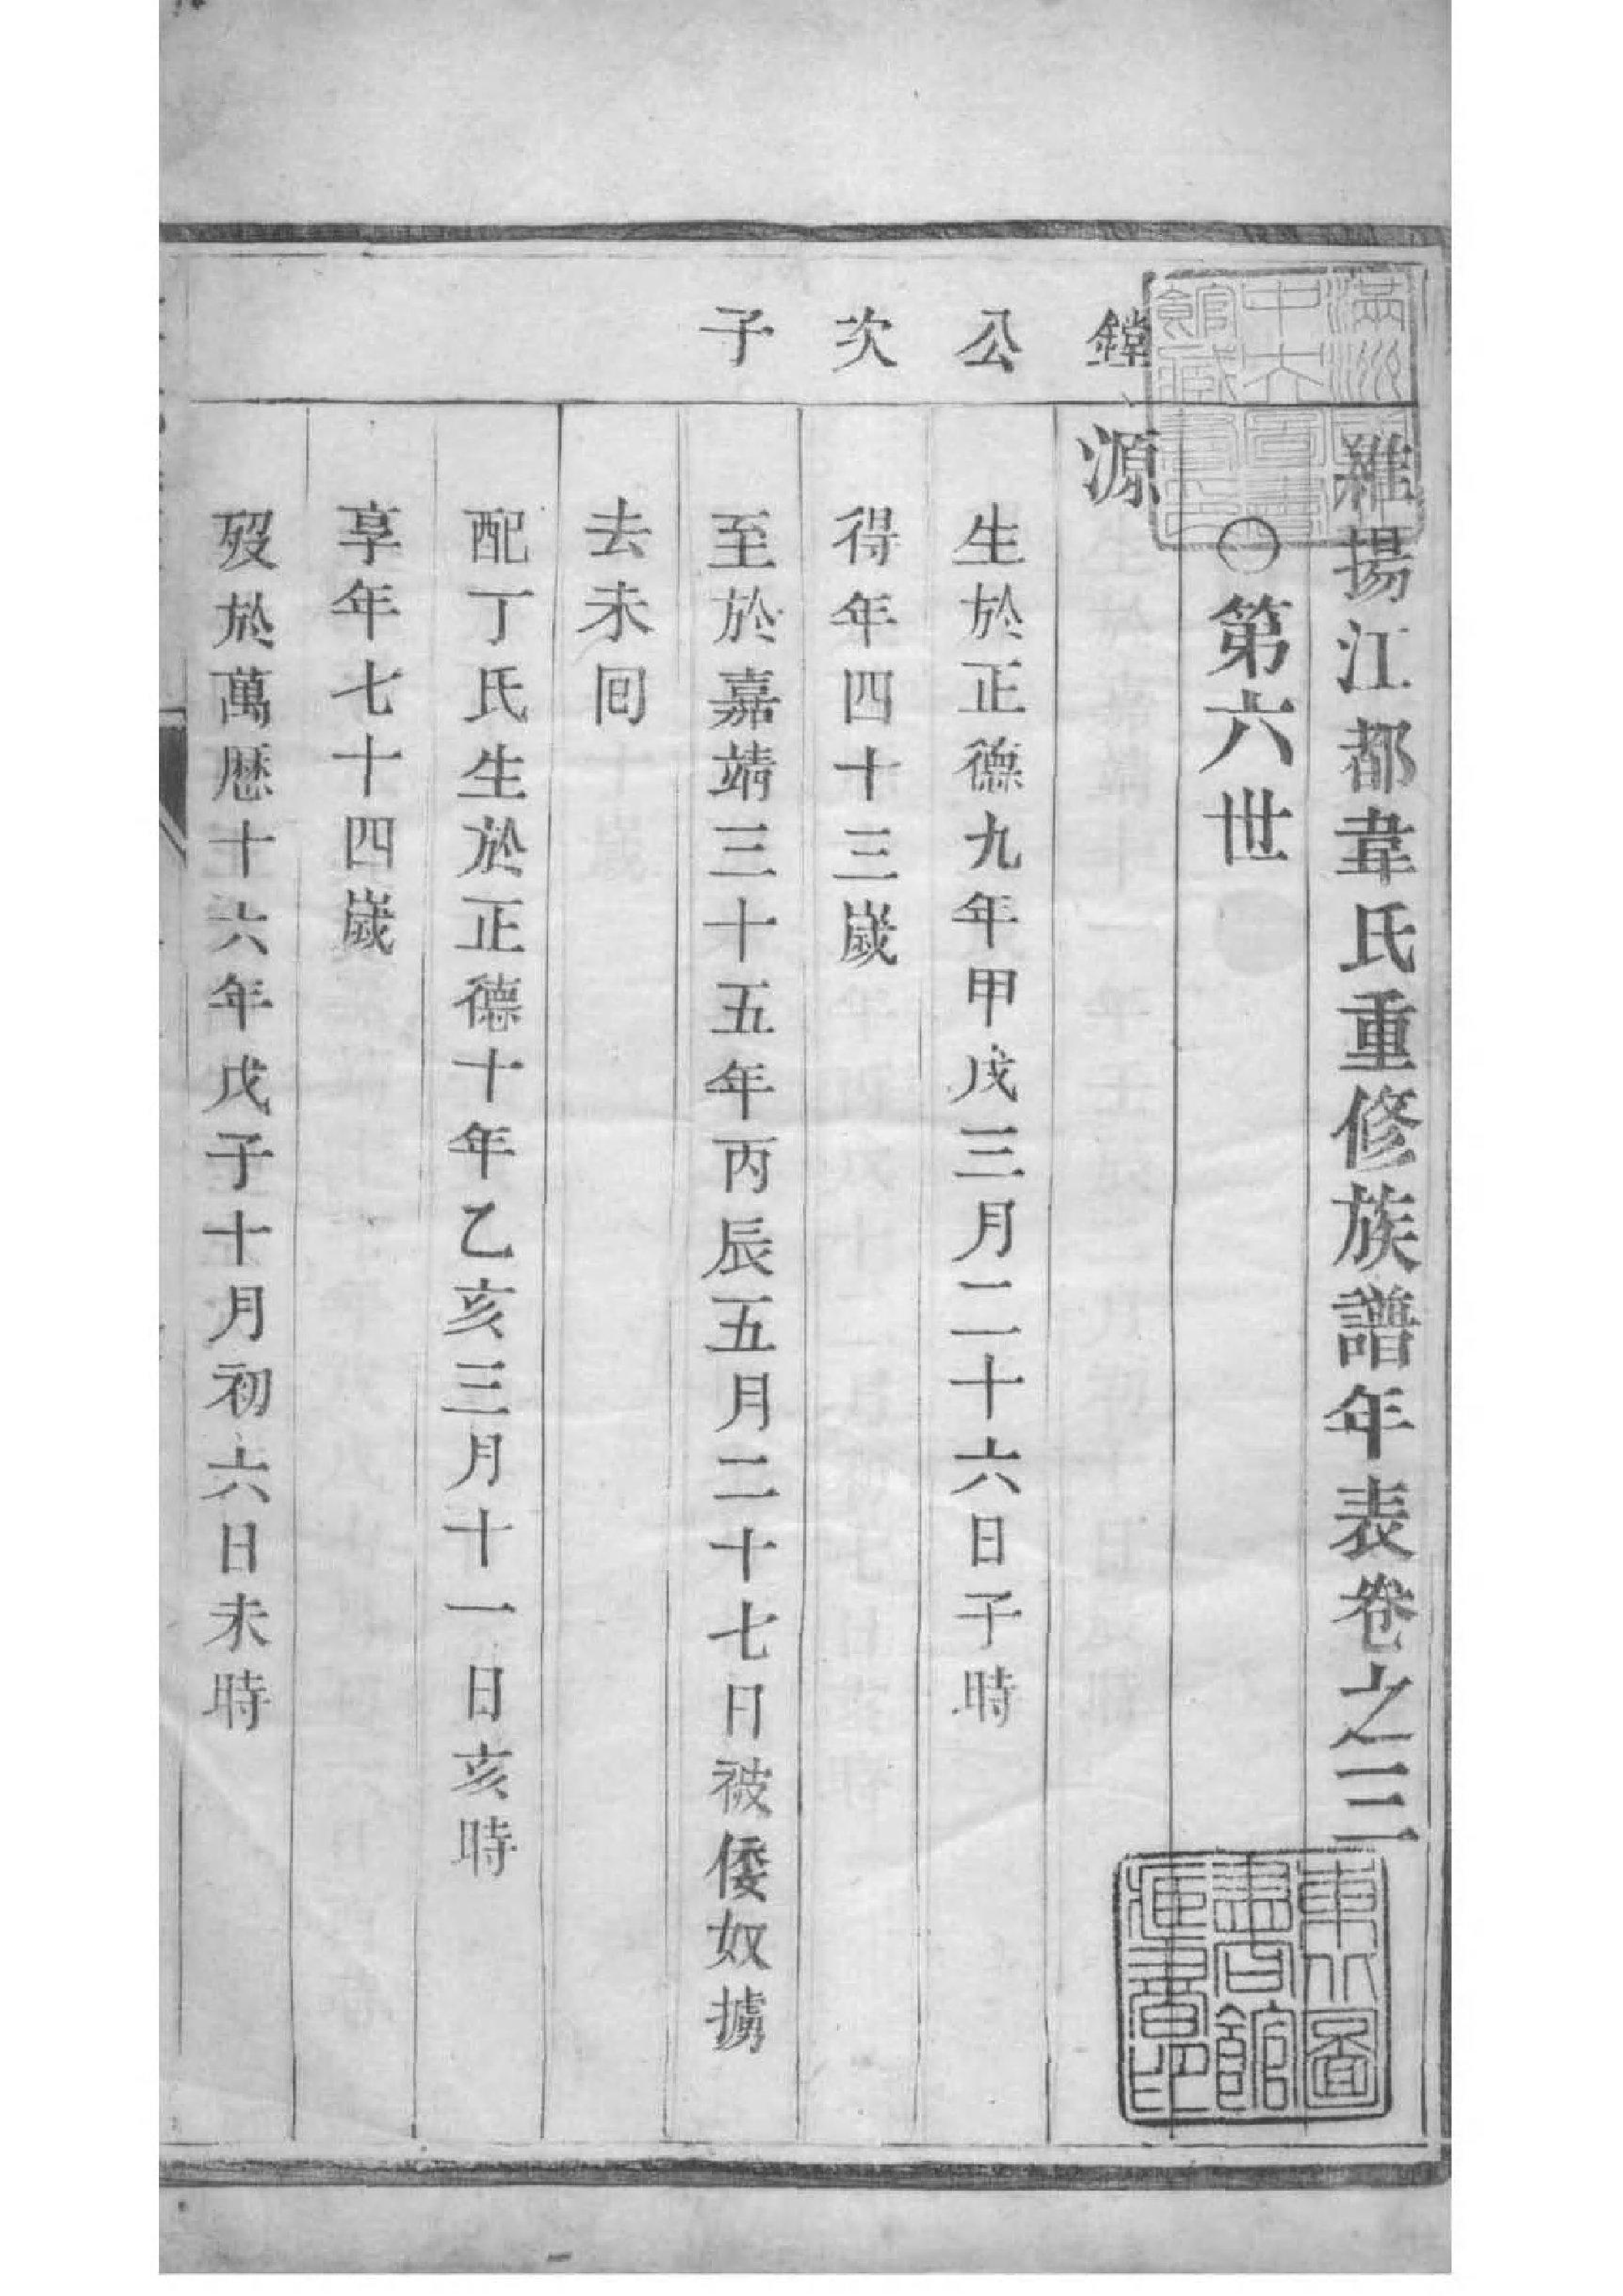 維揚江都韋氏重修族譜年表卷之三
○第六世
鏜公次子
源
生於正德九年甲戌三月二十六日子時
得年四十三歲
至於嘉靖三十五年丙辰五月二十七日被倭奴擄
去未囘
配丁氏生於正德十年乙亥三月十一日亥時
享年七十四歲
歿於萬歷十六年戊子十月初六日未時
東北圖
書館
藏書印